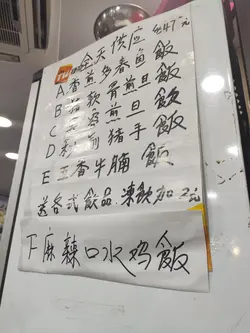 全天供应 每份47元
A 香煎多春鱼飯
B 软骨煎旦飯
C 煎旦飯
D 猪手飯
E 五香牛腩 飯
送各式飲品.凍飲加2元
F 麻辣口水鸡飯